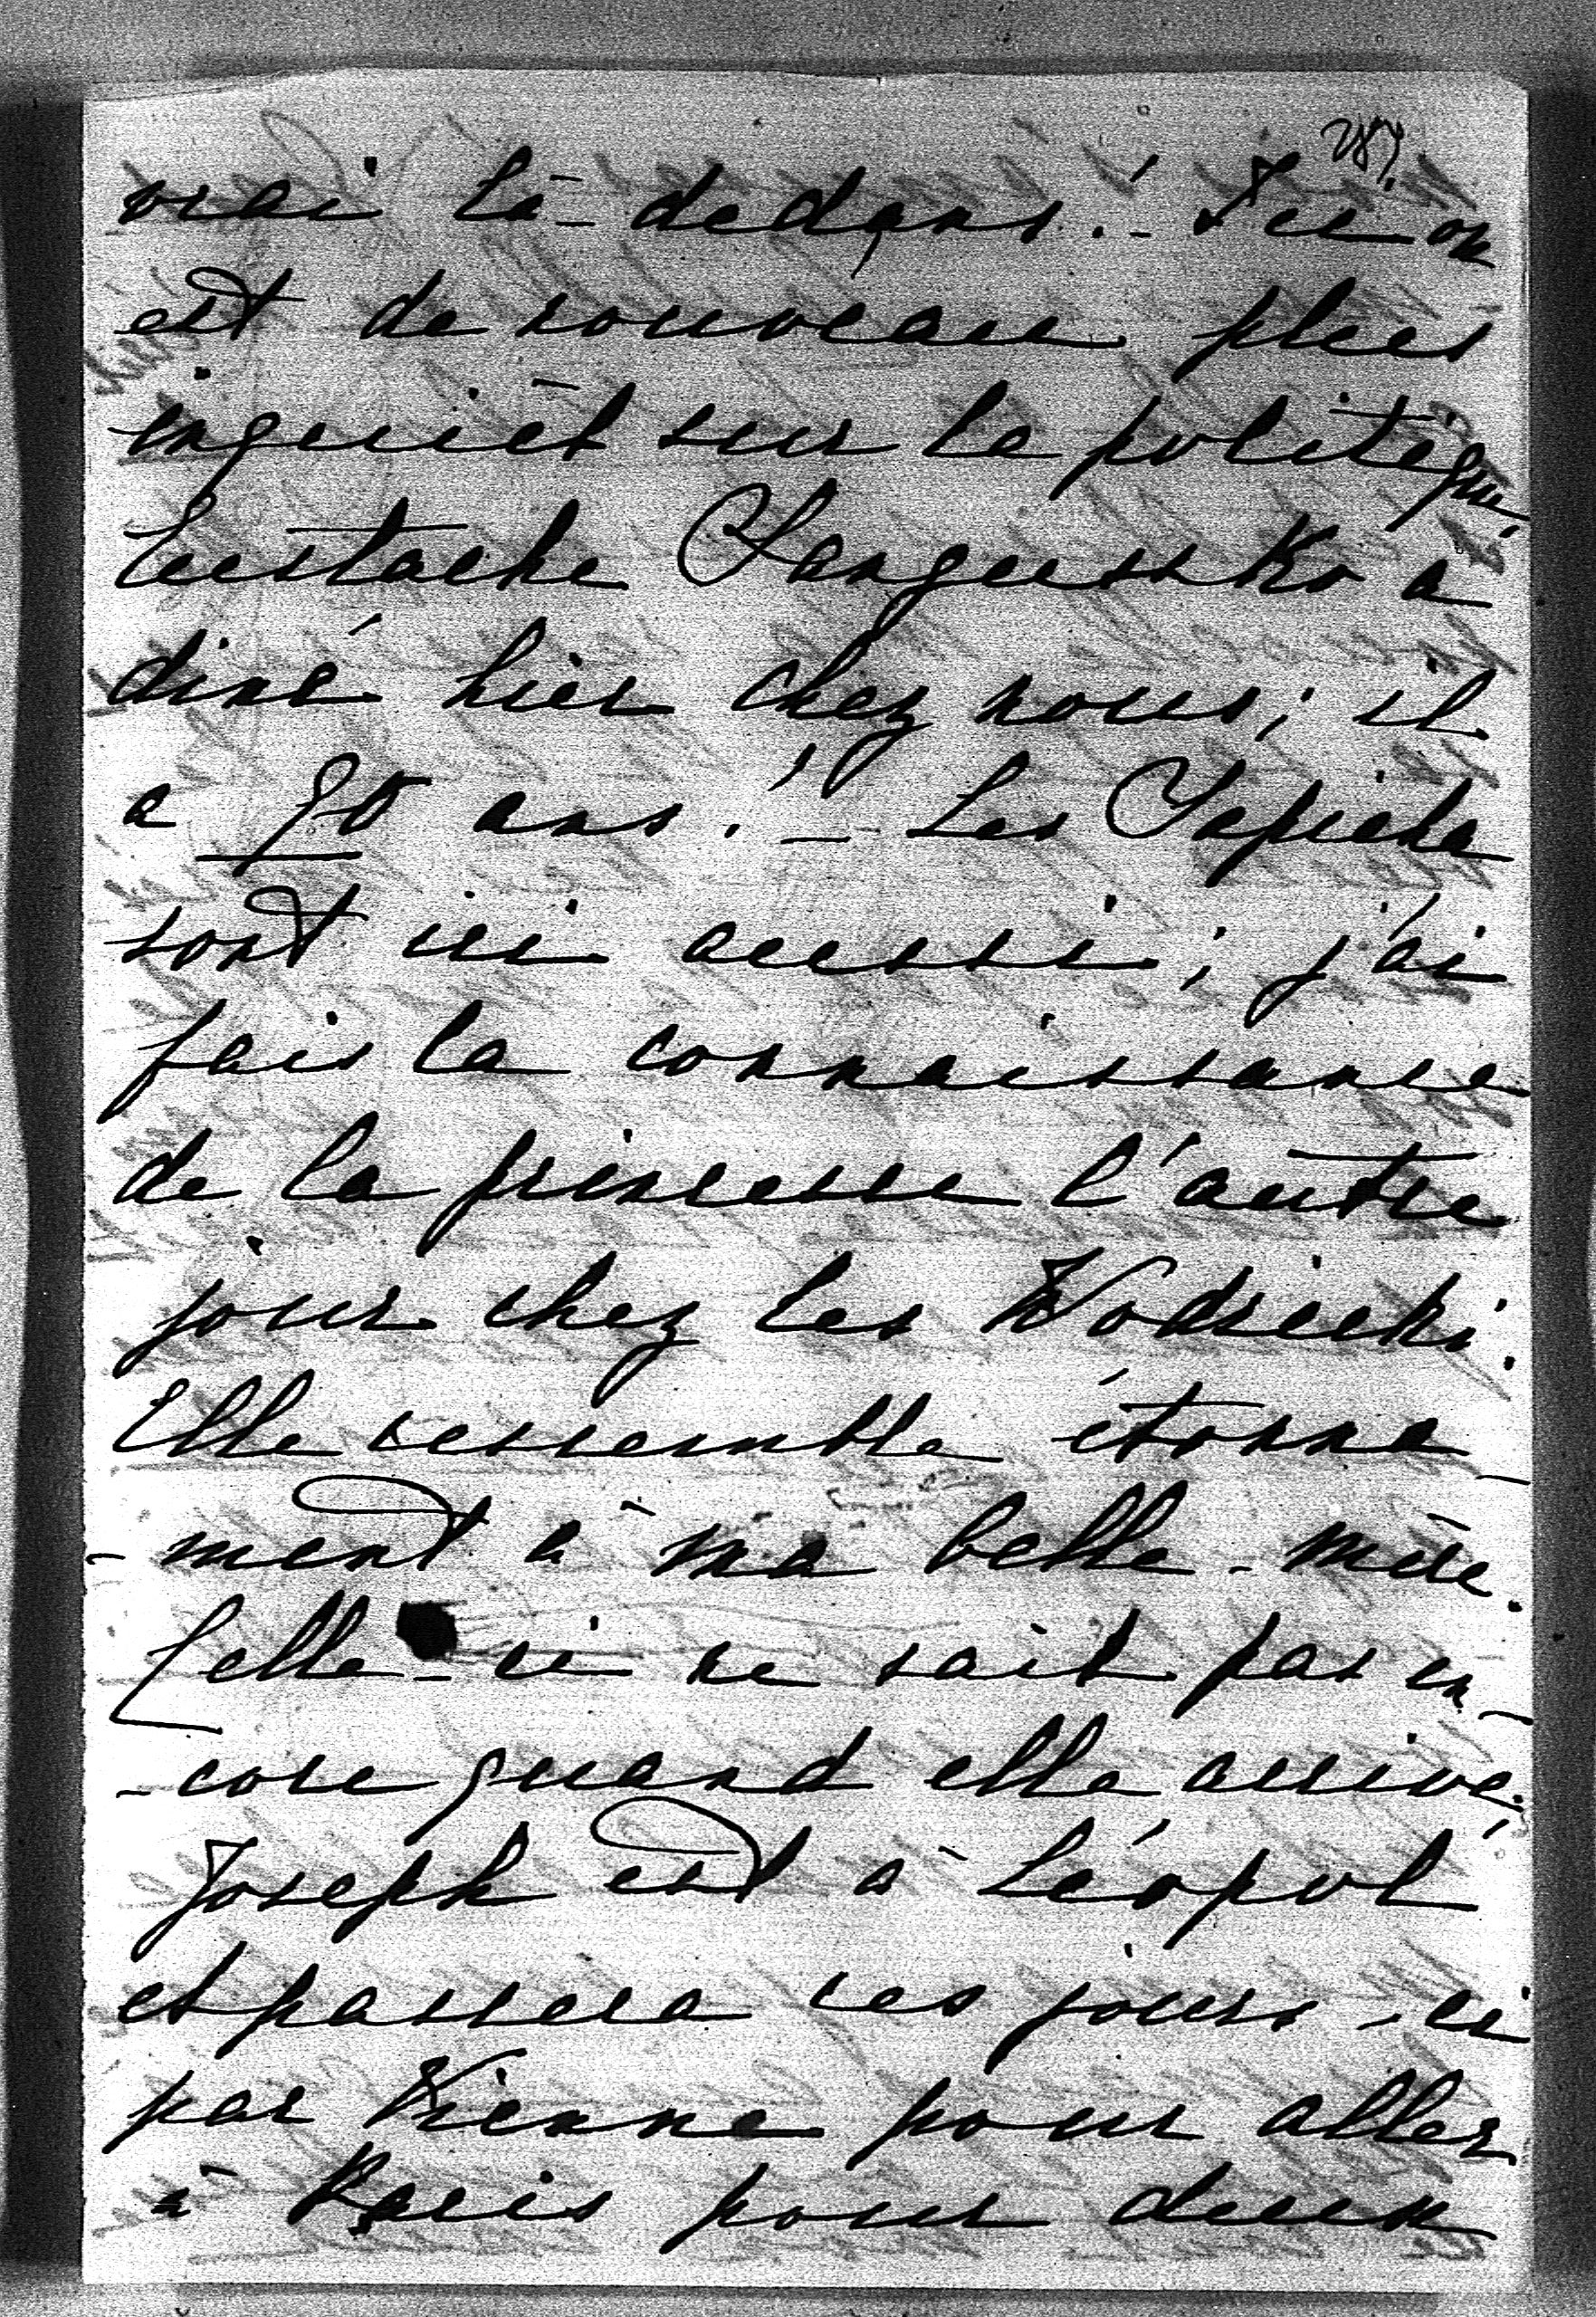 vrai là-dedans! - Ici on
est de nouveau plus
inquiet sur la politique.
Eustache Sanguszko a
diné hier chez nous; il
a 90 ans! - Les Sapieha
sont ici aussi; j'ai
fais la connaissance
de la princesse l'autre
jour chez les Wodzicki.
Elle ressemble étonna-
-ment à ma belle-mère.
Celle-ci ne sait pas en-
-core quand elle arrive.
Joseph est à Léopol
et passera ces jours-ci
par Vienne pour aller
à Paris pour deux